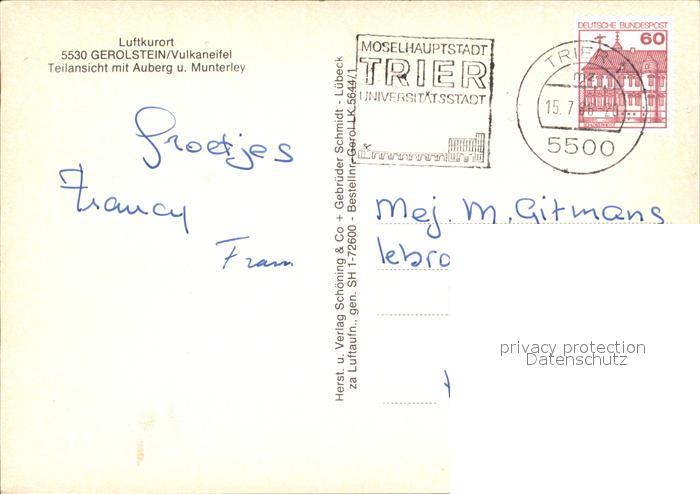 Luftkurort
5530 GEROLSTEIN/Vulkaneifel
Teilansicht mit Auberg u. Munterley
MOSELHAUPTSTADT
TRIER
UNIVERSITÄTSSTADT
DEUTSCHE BUNDESPOST
60
TRIER
15.7.
5500
Groetjes
Francy
Fram
Herst. u. Verlag Schöning & Co + Gebrüder Schmidt - Lübeck
za Luftaufn., gen. SH 1-72600 - Bestellnr. Gerol LK 5644/1
Mej. M. Gitmans
privacy protection
Datenschutz